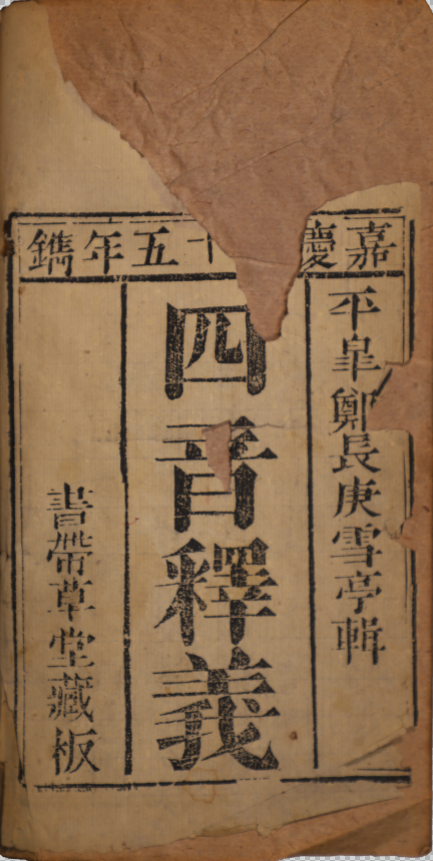 嘉慶十五年鐫
平皐鄭長庚雪亭輯
四音釋義
書帶草堂藏板